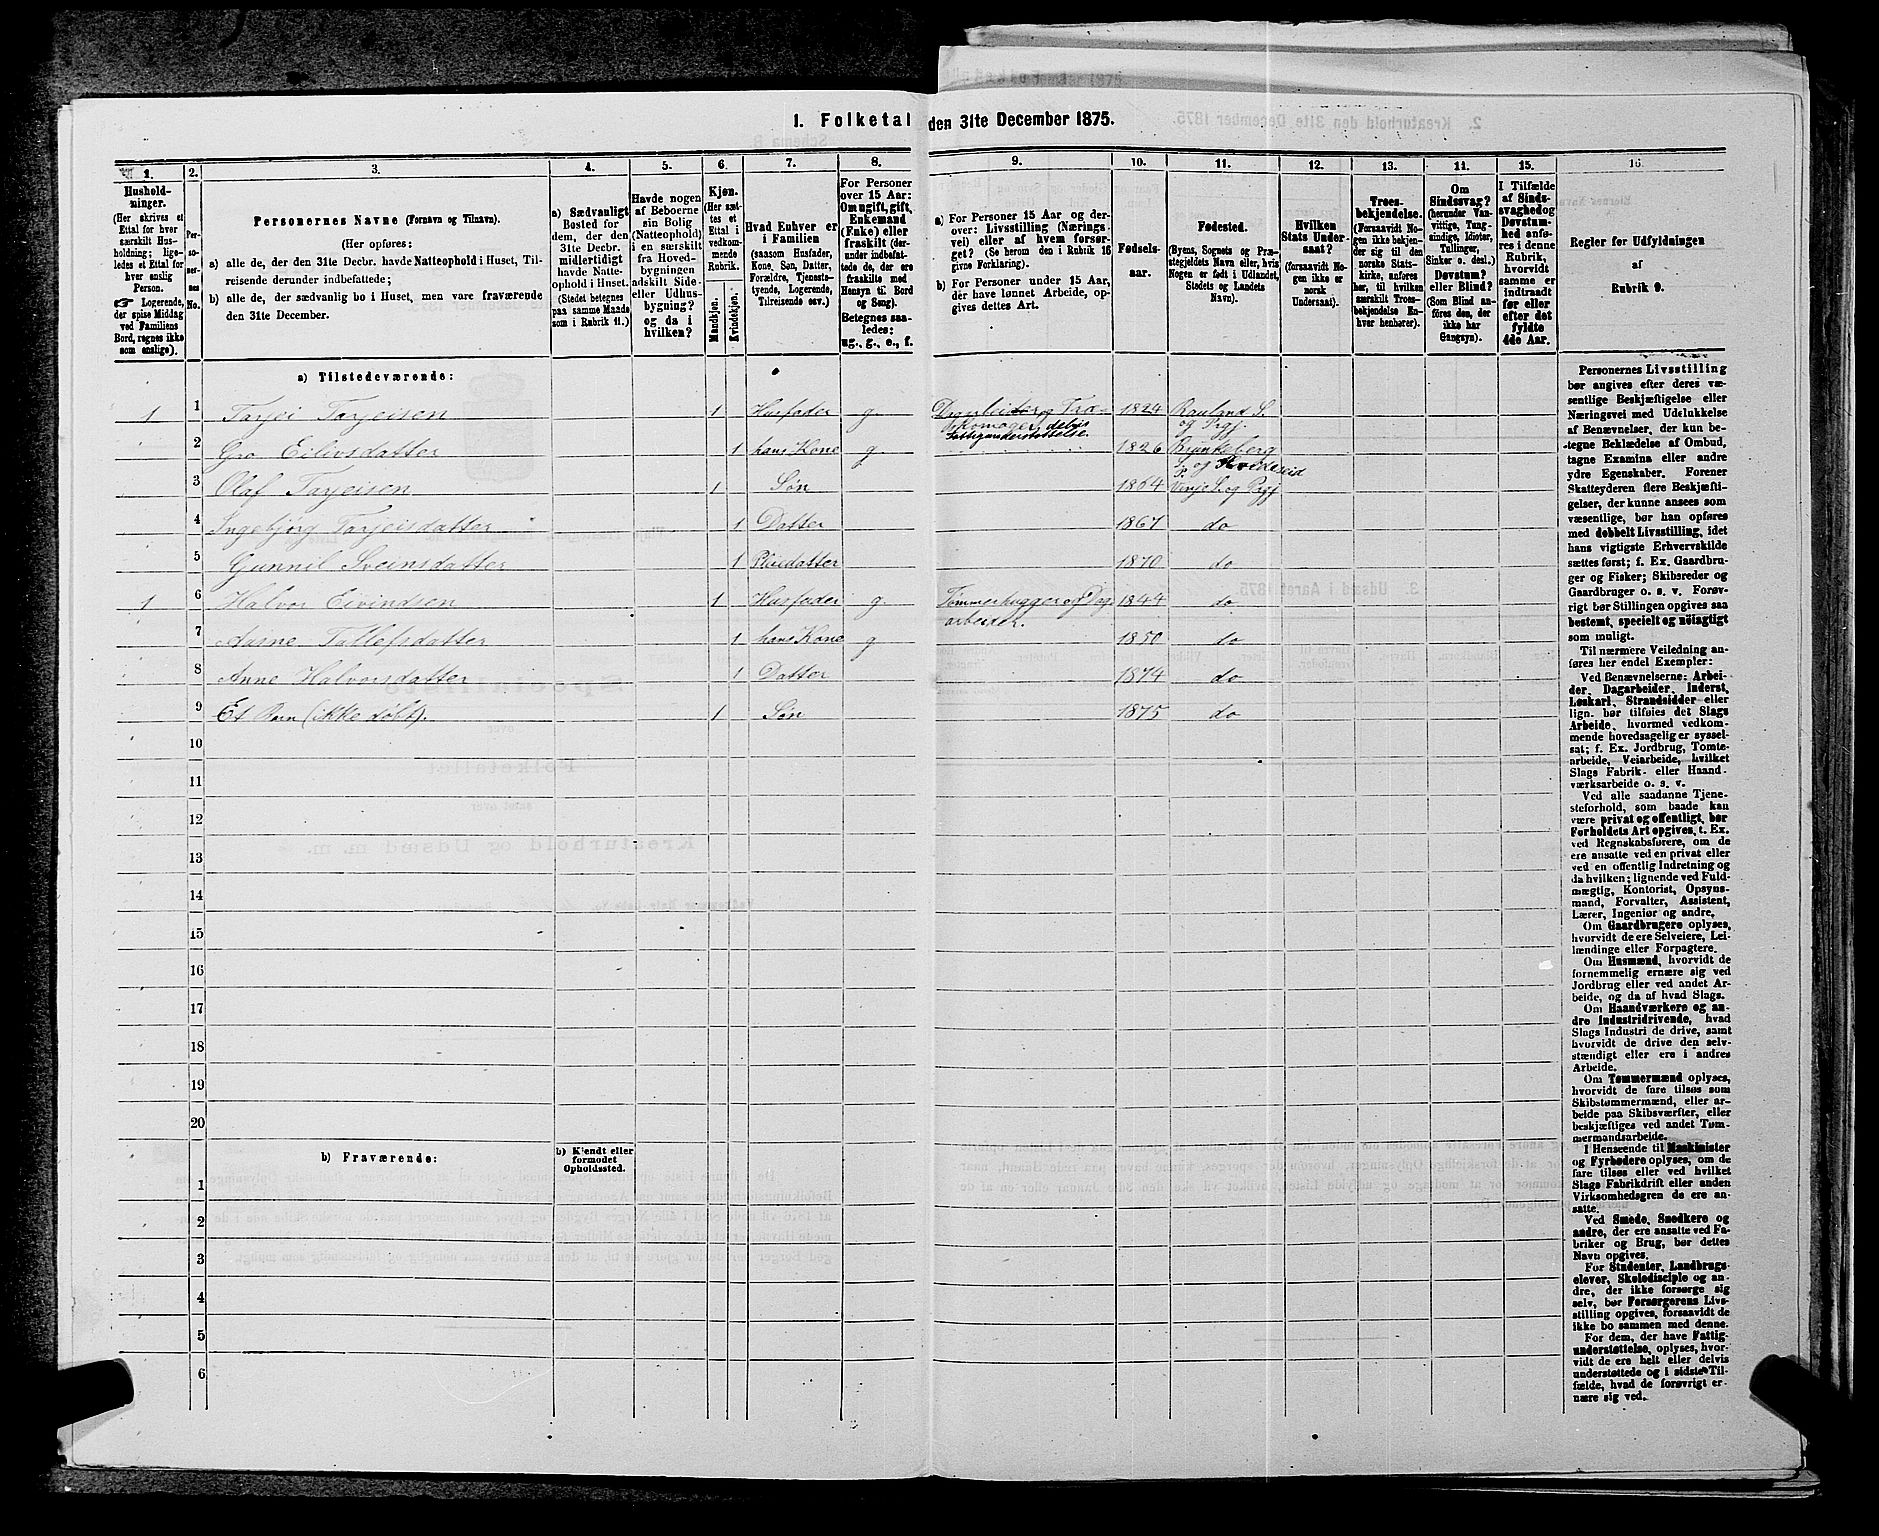 1. Folketal den 31te December 1875.
1.
Hushold-
ninger.
(Her skrives et
Ettal for hver
særskilt Hus-
holdning; lige-
ledes et Ettal for
hver enslig
Person.
☞ Logerende,
der spise Middag
ved Familiens
Bord, regnes ikke
som enslige).
2.
Per-
so-
ner-
nes
No.
3.
Personernes Navne (Fornavn og Tilnavn).
(Her opføres:
a) alle de, der den 31te Decbr. havde Natteophold i Huset, Til-
reisende derunder indbefattede;
b) alle de, der sædvanlig bo i Huset, men vare fraværende
den 31te December.
4.
a) Sædvanligt
Bosted for
dem, der den
31te Decbr.
midlertidigt
havde Natte-
ophold i Huset.
(Stedet betegnes
paa samme Maade
som i Rubrik 11.)
5.
Havde nogen
af Beboerne
sin Bolig
(Natteophold)
i en særskilt
fra Hoved-
bygningen
adskilt Side-
eller Udhus-
bygning?
og da i
hvilken?
6.
Kjøn.
(Her sæt-
tes et
Ettal i
vedkom-
mende
Rubrik.
Mandkjøn.
Kvindekjøn.
7.
Hvad Enhver er
i Familien
(saasom Husfader,
Kone, Søn, Datter,
Forældre, Tjeneste-
tyende, Logerende,
Tilreisende osv.)
8.
For Personer
over 15 Aar:
Om ugift, gift,
Enkemand
(Enke) eller
fraskilt (der-
under indbefat-
tede de, der ere
fraskilte med
Hensyn til Bord
og Seng).
Betegnes saa-
ledes:
ug., g., e., f.
9.
a) For Personer 15 Aar og der-
over: Livsstilling (Nærings-
vei) eller af hvem forsør-
get? (Se herom den i Rubrik 16
givne Forklaring).
b) For Personer under 15 Aar,
der have lønnet Arbeide, op-
gives dettes Art.
10.
Fødsels-
aar.
11.
Fødested.
(Byens, Sognets og Præ-
stegjeldets Navn eller, hvis
Nogen er født i Udlandet,
Stedets og Landets
Navn).
12.
Hvilken
Stats Under-
saat?
(forsaavidt No-
gen ikke er
norsk
Undersaat).
13.
Troes-
bekjendelse.
(Forsaavidt No-
gen ikke bekjen-
der sig til den
norske Stats-
kirke, anføres
her, til hvilken
særskilt Troes-
bekjendelse En-
hver henhører).
14.
Om
Sindssvag?
(herunder Van-
vittige, Tung-
sindige, Idioter,
Tullinger,
Sinker o. desl.)
Døvstum?
eller Blind?
(Som Blind an-
føres den, der
ikke har
Gangsyn).
15.
I Tilfælde
af Sinds-
svaghed og
Døvstum-
hed anfø-
res i denne
Rubrik,
hvorvidt
samme er
indtraadt
før eller
efter det
fyldte
4de Aar.
16.
Regler for Udfyldningen
af
Rubrik 9.
a) Tilstedeværende:
1 1 Tarjei Tarjeisen 1 Husfader g. Dagarbeider og Træ- 1824 Rauland S.
skomager, delvis og Prgj.
Fattigunderstøttelse.
2 Gro Eilivsdatter 1 hans Kone g. 1826 Brunkeberg
S. og Kviteseid P.
3 Olaf Tarjeisen 1 Søn 1864 Vinje S. og Prgj.
4 Ingebjørg Tarjeisdatter 1 Datter 1867 do
5 Gunnil Sveinsdatter 1 Pleiedatter 1870 do
1 6 Halvor Eivindsen 1 Husfader g. Tømmerhugger og Dag- 1844 do
arbeider.
7 Aasne Tallefsdatter 1 hans Kone g 1850 do
8 Anne Halvorsdatter 1 Datter 1874 do
9 Et Barn (ikke døbt). 1 Søn 1875 do
10
11
12
13
14
15
16
17
18
19
20
b) Fraværende:
b) Kjendt eller
formodet
Opholdssted.
1
2
3
4
5
6
Personernes Livsstilling
bør angives efter deres væ-
sentlige Beskjæftigelse eller
Næringsvei med Udelukkelse
af Benævnelser, der kun be-
tegne Beklædelse af Ombud,
tagne Examina eller andre
ydre Egenskaber. Forener
Skatteyderen flere Beskjæfti-
gelser, der kunne ansees som
væsentlige, bør han opføres
med dobbelt Livsstilling, idet
hans vigtigste Erhvervskilde
sættes først; f. Ex. Gaardbru-
ger og Fisker; Skibsreder og
Gaardbruger o. s. v. Forøv-
rigt bør Stillingen opgives saa
bestemt, specielt og nøiagtigt
som muligt.
Til nærmere Veiledning an-
føres her endel Exempler:
Ved Benævnelserne: Arbei-
der, Dagarbeider, Inderst,
Løskarl, Strandsidder eller
lign. bør tilføies det Slags
Arbeide, hvormed vedkom-
mende hovedsagelig er syssel-
sat; f. Ex. Jordbrug, Tomte-
arbeide, Veiarbeide, hvilket
Slags Fabrik- eller Haand-
værksarbeide o. s. v.
Ved alle saadanne Tjene-
steforhold, som baade kan
være privat og offentligt, bør
Forholdets Art opgives, t. Ex.
ved Regnskabsførere, om de
ere ansatte ved en privat eller
ved en offentlig Indretning og
da hvilken; lignende ved Fuld-
mægtig, Kontorist, Opsyns-
mand, Forvalter, Assistent,
Lærer, Ingeniør og andre.
Om Gaardbrugere oplyses,
hvorvidt de ere Selveiere, Lei-
lændinge eller Forpagtere.
Om Husmænd, hvorvidt de
fornemmelig ernære sig ved
Jordbrug eller ved andet Ar-
beide, og da af hvad Slags.
Om Haandværkere og an-
dre Industridrivende, hvad
Slags Industri de drive, samt
hvorvidt de drive den selv-
stændigt eller ere i andres
Arbeide.
Om Tømmermænd oplyses,
hvorvidt de fare tilsøs som
Skibstømmermænd, eller ar-
beide paa Skibsværfter, eller
beskjæftiges ved andet Tøm-
mermandsarbeide.
I Henseende til Maskinister
og Fyrbødere oplyses, om de
fare tilsøs eller ved hvilket
Slags Fabrikdrift eller anden
Virksomhedsgren de ere an-
satte.
Ved Smede, Snedkere og
andre, der ere ansatte ved Fa-
briker og Brug, bør dettes
Navn opgives.
For Studenter, Landbrugs-
elever, Skoledisciple og an-
dre, der ikke forsørge sig
selv, bør Forsørgerens Livs-
stilling opgives, forsaavidt de
ikke bo sammen med denne.
For dem, der have Fattig-
understøttelse, oplyses, hvor-
vidt de ere helt eller delvis
understøttede og i sidste Til-
fælde, hvad de forøvrigt er-
nære sig ved.